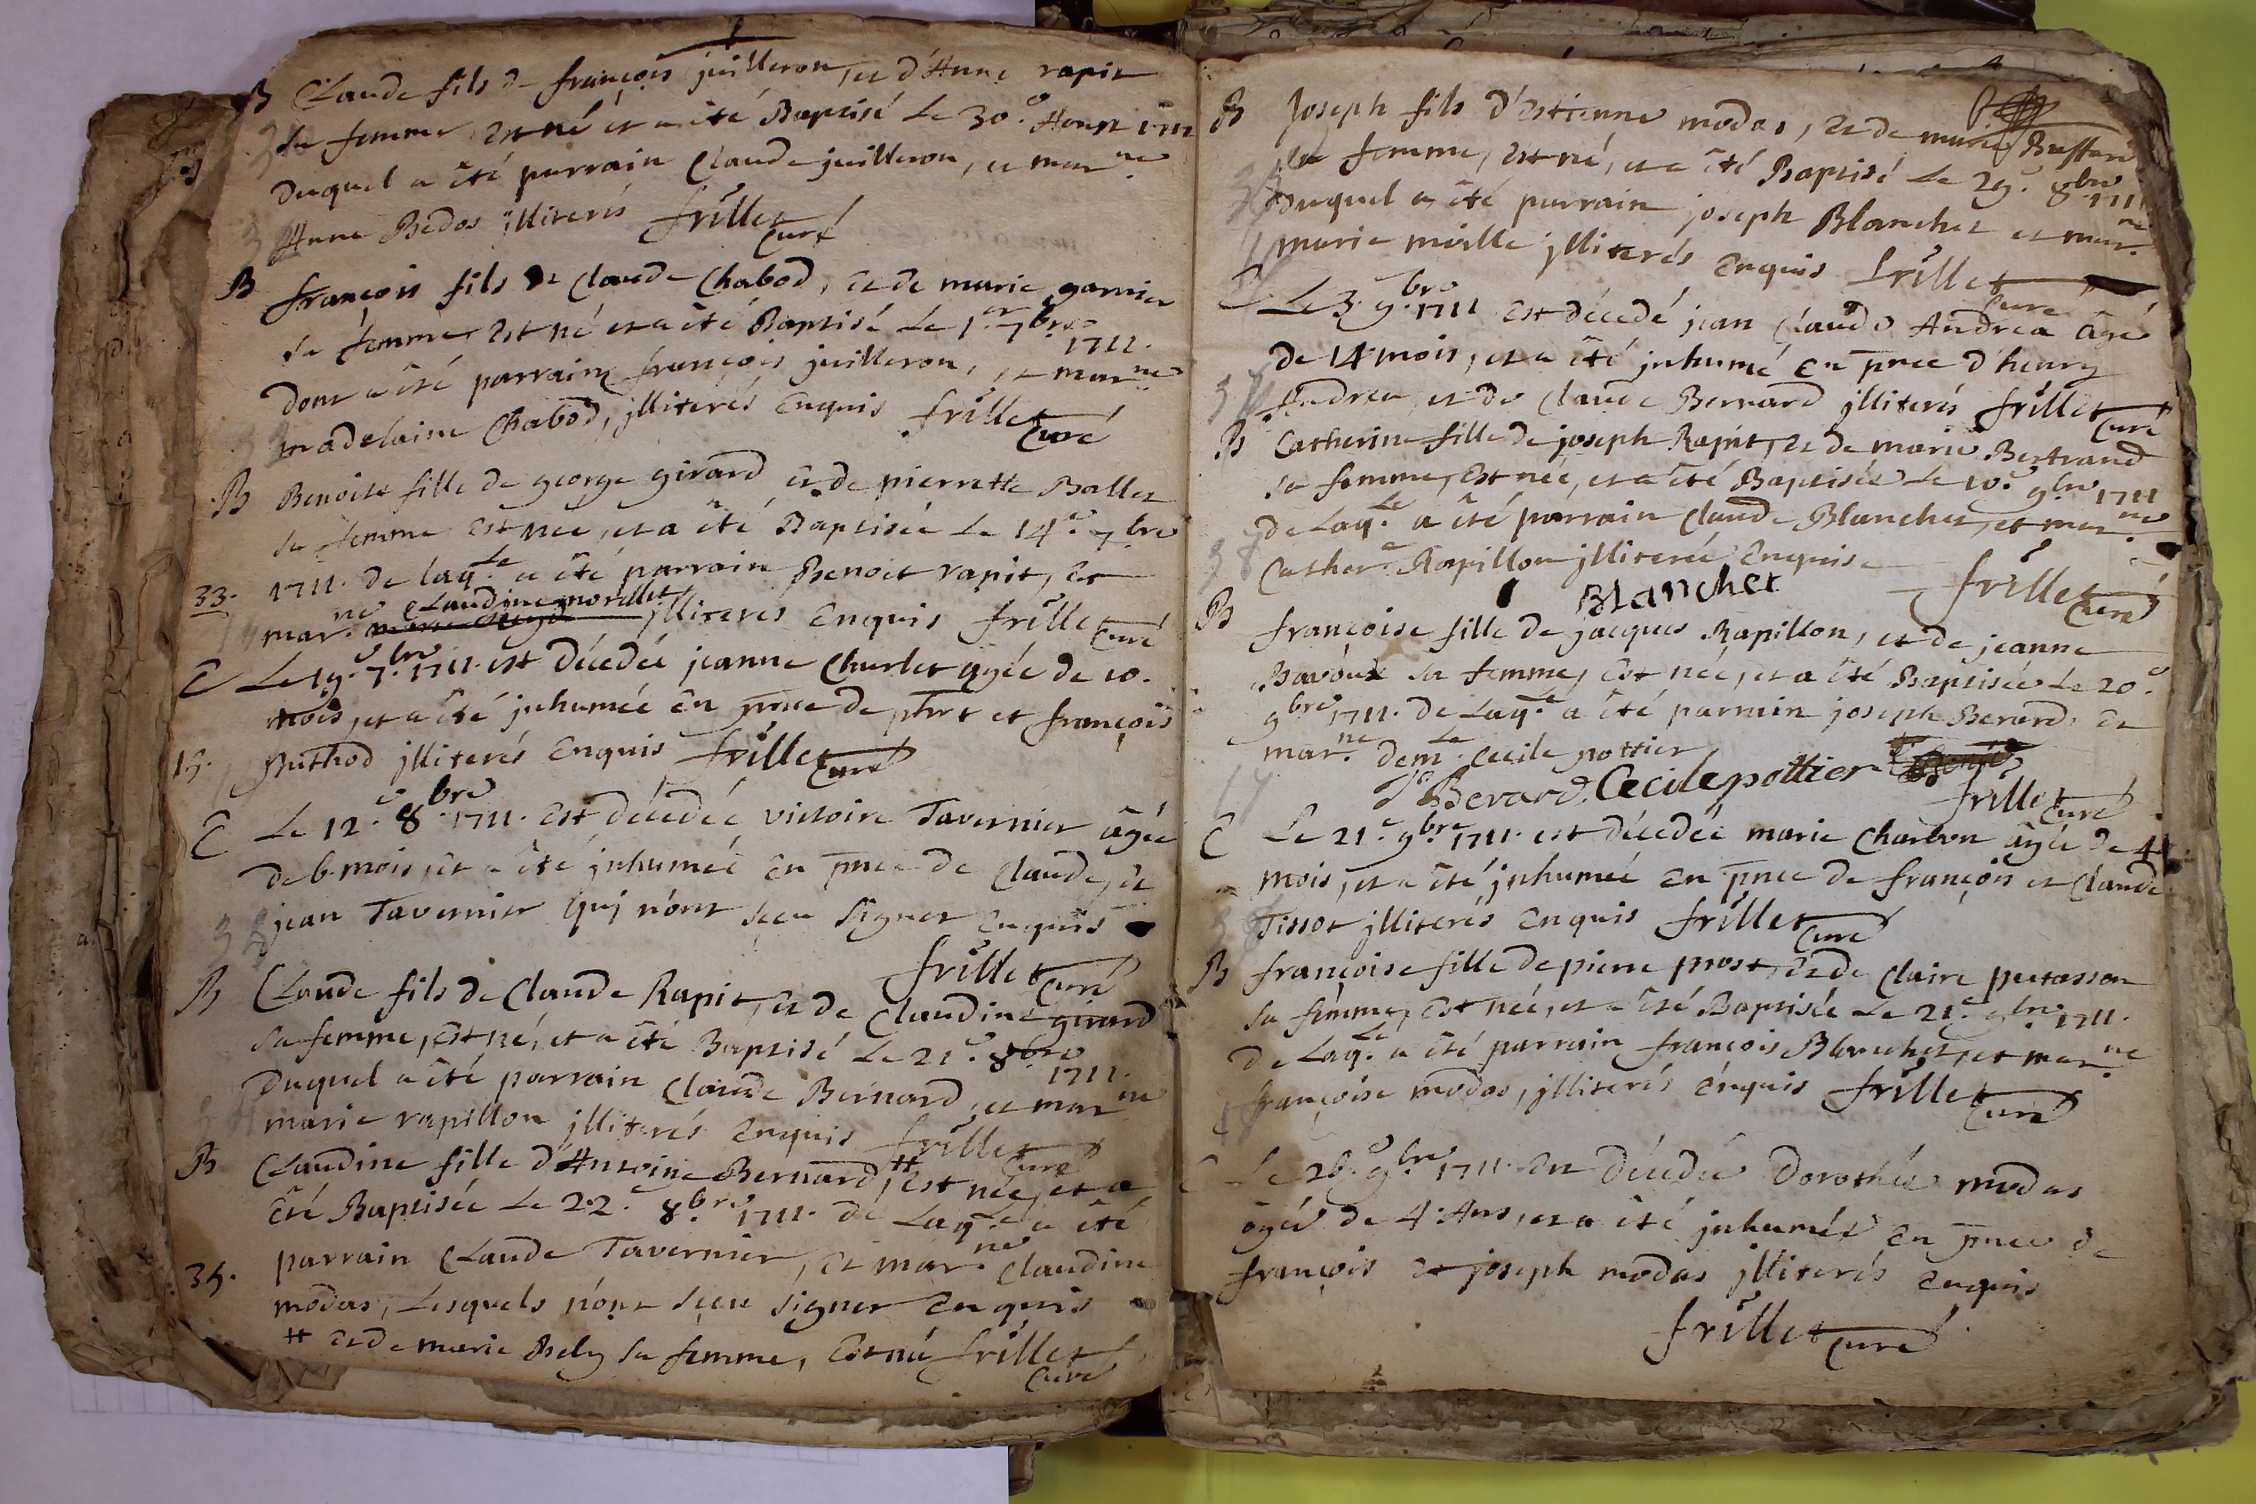 B Claude fils de françois juilleron, et d'Anne rapit
sa femme, est né et a été Baptisé Le 30.e Aoust 1711
duquel a été parrain Claude juilleron, et mar.ne
Anne Bedos illiterés frillet curé
B françois fils de Claude Chabod, et de marie garnier
sa femme, est né et a été Baptisé Le 1.er 7.bre 1711.
dont a été parrain françois juilleron, et mar.ne
madelaine Chabod, jlliterés Enquis frillet Curé
B Benoiste fille de george girard et de pierrette Ballet
sa femme est née, et a été Baptisée Le 14.e 7.bre
33. 1711. de laq.le a été parrain Benoit rapit, et
mar.ne Claudine morellet jlliterés Enquis frillet Curé
E Le 19.e 7.bre 1711. est décedée jeanne Charlet agée de 10.
mois, et a été jnhumée En pnce de et françois
19. Buthod jlliterés Enquis frillet Curé
E Le 12.e 8.bre 1711. est décedée victoire Tavernier âgée
de 6. mois, et a été jnhumée En pnce de Claude, et
jean Tavernier qui n'ont sçeu signer Enquis
frillet Curé
B Claude fils de Claude Rapit, et de Claudine girard
sa femme, est né, et a été Baptisé Le 21.e 8.bre 1711.
duquel a été parrain Claude Bernard, et mar.ne
marie rapillon jlliterés Enquis frillet Curé
B Claudine fille d'Antoine Bernard, # est née, et a
été Baptisée Le 22.e 8.bre 1711. de Laq.le a été
parrain Claude Tavernier, et mar.ne Claudine
35. modas, Lesquels n'ont sçeu signer Enquis
# et de marie Bely sa femme, frillet Curé
B Joseph fils d'Estienne modas, et de marie Buffard
sa femme, est né, et a été Baptisé Le 29.e 8.bre 1711
duquel a été parrain joseph Blanchet et mar.ne
marie mielle jlliterés Enquis frillet Curé
E Le 3.e 9.bre 1711 est décedé jean Claude Andrea âgé
de 14 mois, et a été jnhumé En pnce d'henry
Andrea, et de Claude Bernard jlliterés frillet Curé
B Catherine fille de joseph Rapit, et de marie Bertrand
sa femme, est née, et a été Baptisée Le 10.e 9.bre 1711
de Laq.le a été parrain Claude Blanchet, et mar.ne
Cather.e Rapillon jlliterée Enquise
Blanchet frillet Curé
B françoise fille de jacques Rapillon, et de jeanne
Bavoux sa femme, est née, et a été Baptisée Le 20.e
9.bre 1711. de Laq.le a été parrain joseph Berard, et
mar.ne dem.le Cecile pottier
Jo Berard. Cecile pottier
frillet Curé
E Le 21.e 9.bre 1711. est décedée marie Charbon âgée de 4
mois, et a été jnhumée En pnce de françois et Claude
Tissot jlliterés Enquis frillet Curé
B françoise fille de pierre prost, et de Claire putasson
sa femme, est née, et a été Baptisée Le 21.e 9.bre 1711.
de Laq.le a été parrain françois Blanchet, et mar.ne
françoise modas, jlliterés Enquis frillet Curé
E Le 26.e 9.bre 1711. est décedée Dorothée modas
âgée de 4. Ans, et a été jnhumée En pnce de
françois et joseph modas jlliterés Enquis
frillet Curé